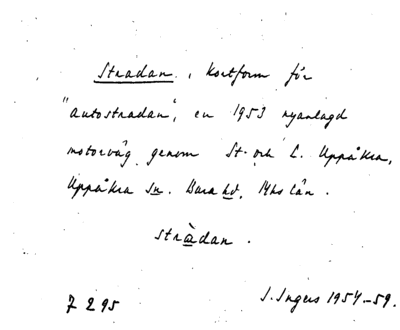 Stradan, kortform för
"autostradan", en 1953 nyanlagd
motorväg genom St. och L. Uppåkra,
Uppåkra sn. Bara hd, Mhs län.
stràdan.
7295 I. Ingers 1954-59.